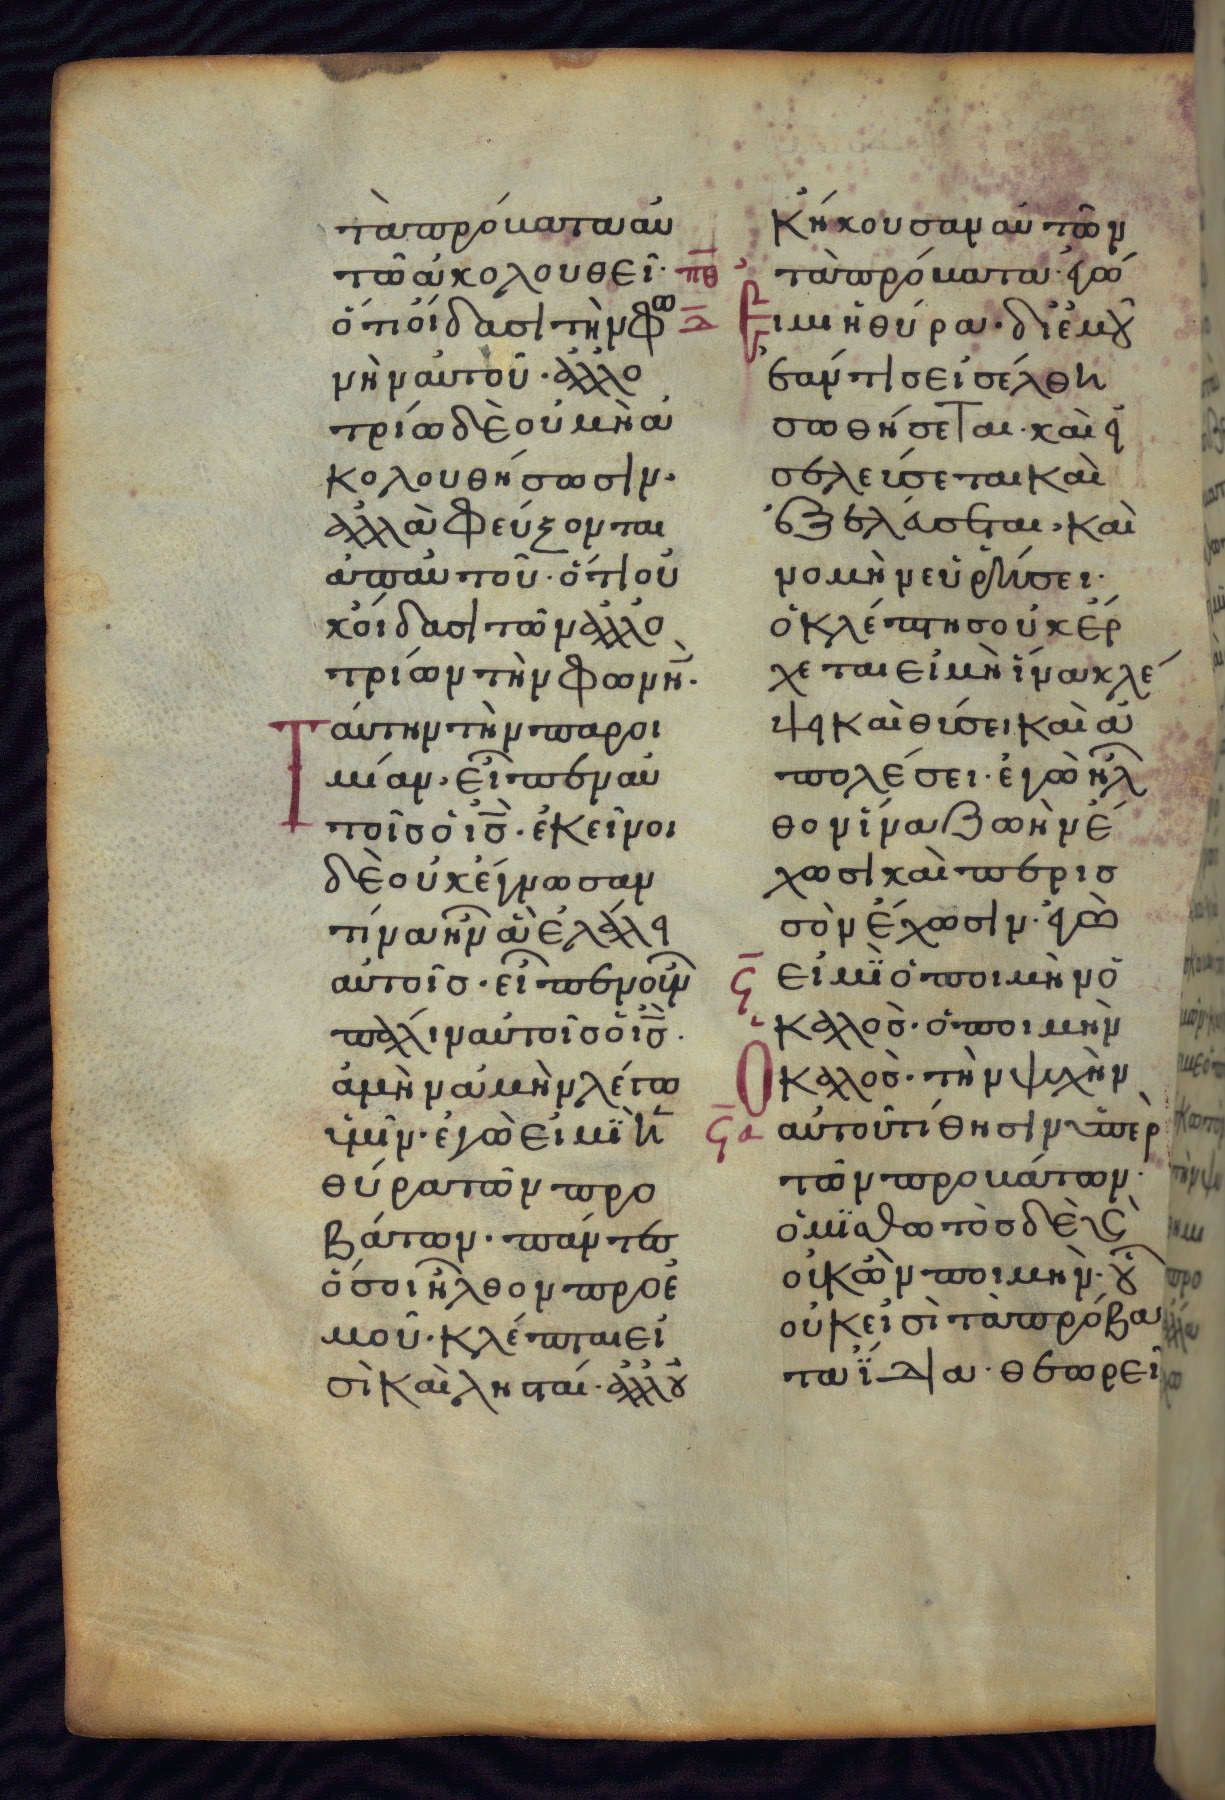 τὰ πρόβατα αὐ
τῶ ἀκολουθεῖ· πθ
ὅτι οἴδασι τὴν φω
νὴν αὐτοῦ· ἀλλο
τρίω δὲ οὐ μὴ ἀ
κολουθήσωσιν·
ἀλλὰ φεύξονται
ἀπ αὐτοῦ· ὅτι οὐ
κ οἴδασι τῶν ἀλλο
τρίων τὴν φωνὴν·
Ταύτην τὴν παροι
μίαν· εἶπεν αὐ
τοῖσ ὁ ισ· ἐκεῖνοι
δὲ οὐκ ἔγνωσαν
τίνα ἦν ἃ ἐλάλει
αὐτοῖσ· εἶπεν οὖν
πάλιν αὐτοῖσ ὁ ισ·
ἀμὴν ἀμὴν λέγω
ὑμῖν· ἐγὼ εἰμὶ ἡ
θύρα τῶν προ
βάτων· πάντεσ
ὅσοι ἦλθον πρὸ ἐ
μοῦ· κλέπται εἰ
σὶ καὶ λησταί· ἀλλ οὐ
κ ἤκουσαν αὐτῶν
τὰ πρόβατα· ἐγώ
Εἰμι ἡ θύρα· δι ἐμοῦ
ἐάν τισ εἰσέλθη
σωθήσεται· καὶ εἰ
σελεύσεται καὶ
ἐξελεύσεται· καὶ
νομὴν εὑρήσει·
ὁ κλέπτησ οὐκ ἔρ
χεται εἰ μὴ ἵνα κλέ
ψει καὶ θύσει καὶ ἀ
πολέσει· ἐγὼ ἦλ
θον ἵνα ζωὴν ἔ
χωσι καὶ περισ
σὸν ἔχωσιν· ἐγὼ
ϟ εἰμὶ ὁ ποιμὴν ὁ
καλὸσ· ὁ ποιμὴν
Ὁ καλὸσ· τὴν ψυχὴν
ϟα αὐτοῦ τίθησιν ὑπὲρ
τῶν προβάτων·
ὁ μισθωτὸσ δὲ καὶ
οὐκ ὢν ποιμὴν· οὗ
οὐκ εἰσὶ τὰ πρόβα
τα ἴδια· θεωρεῖ